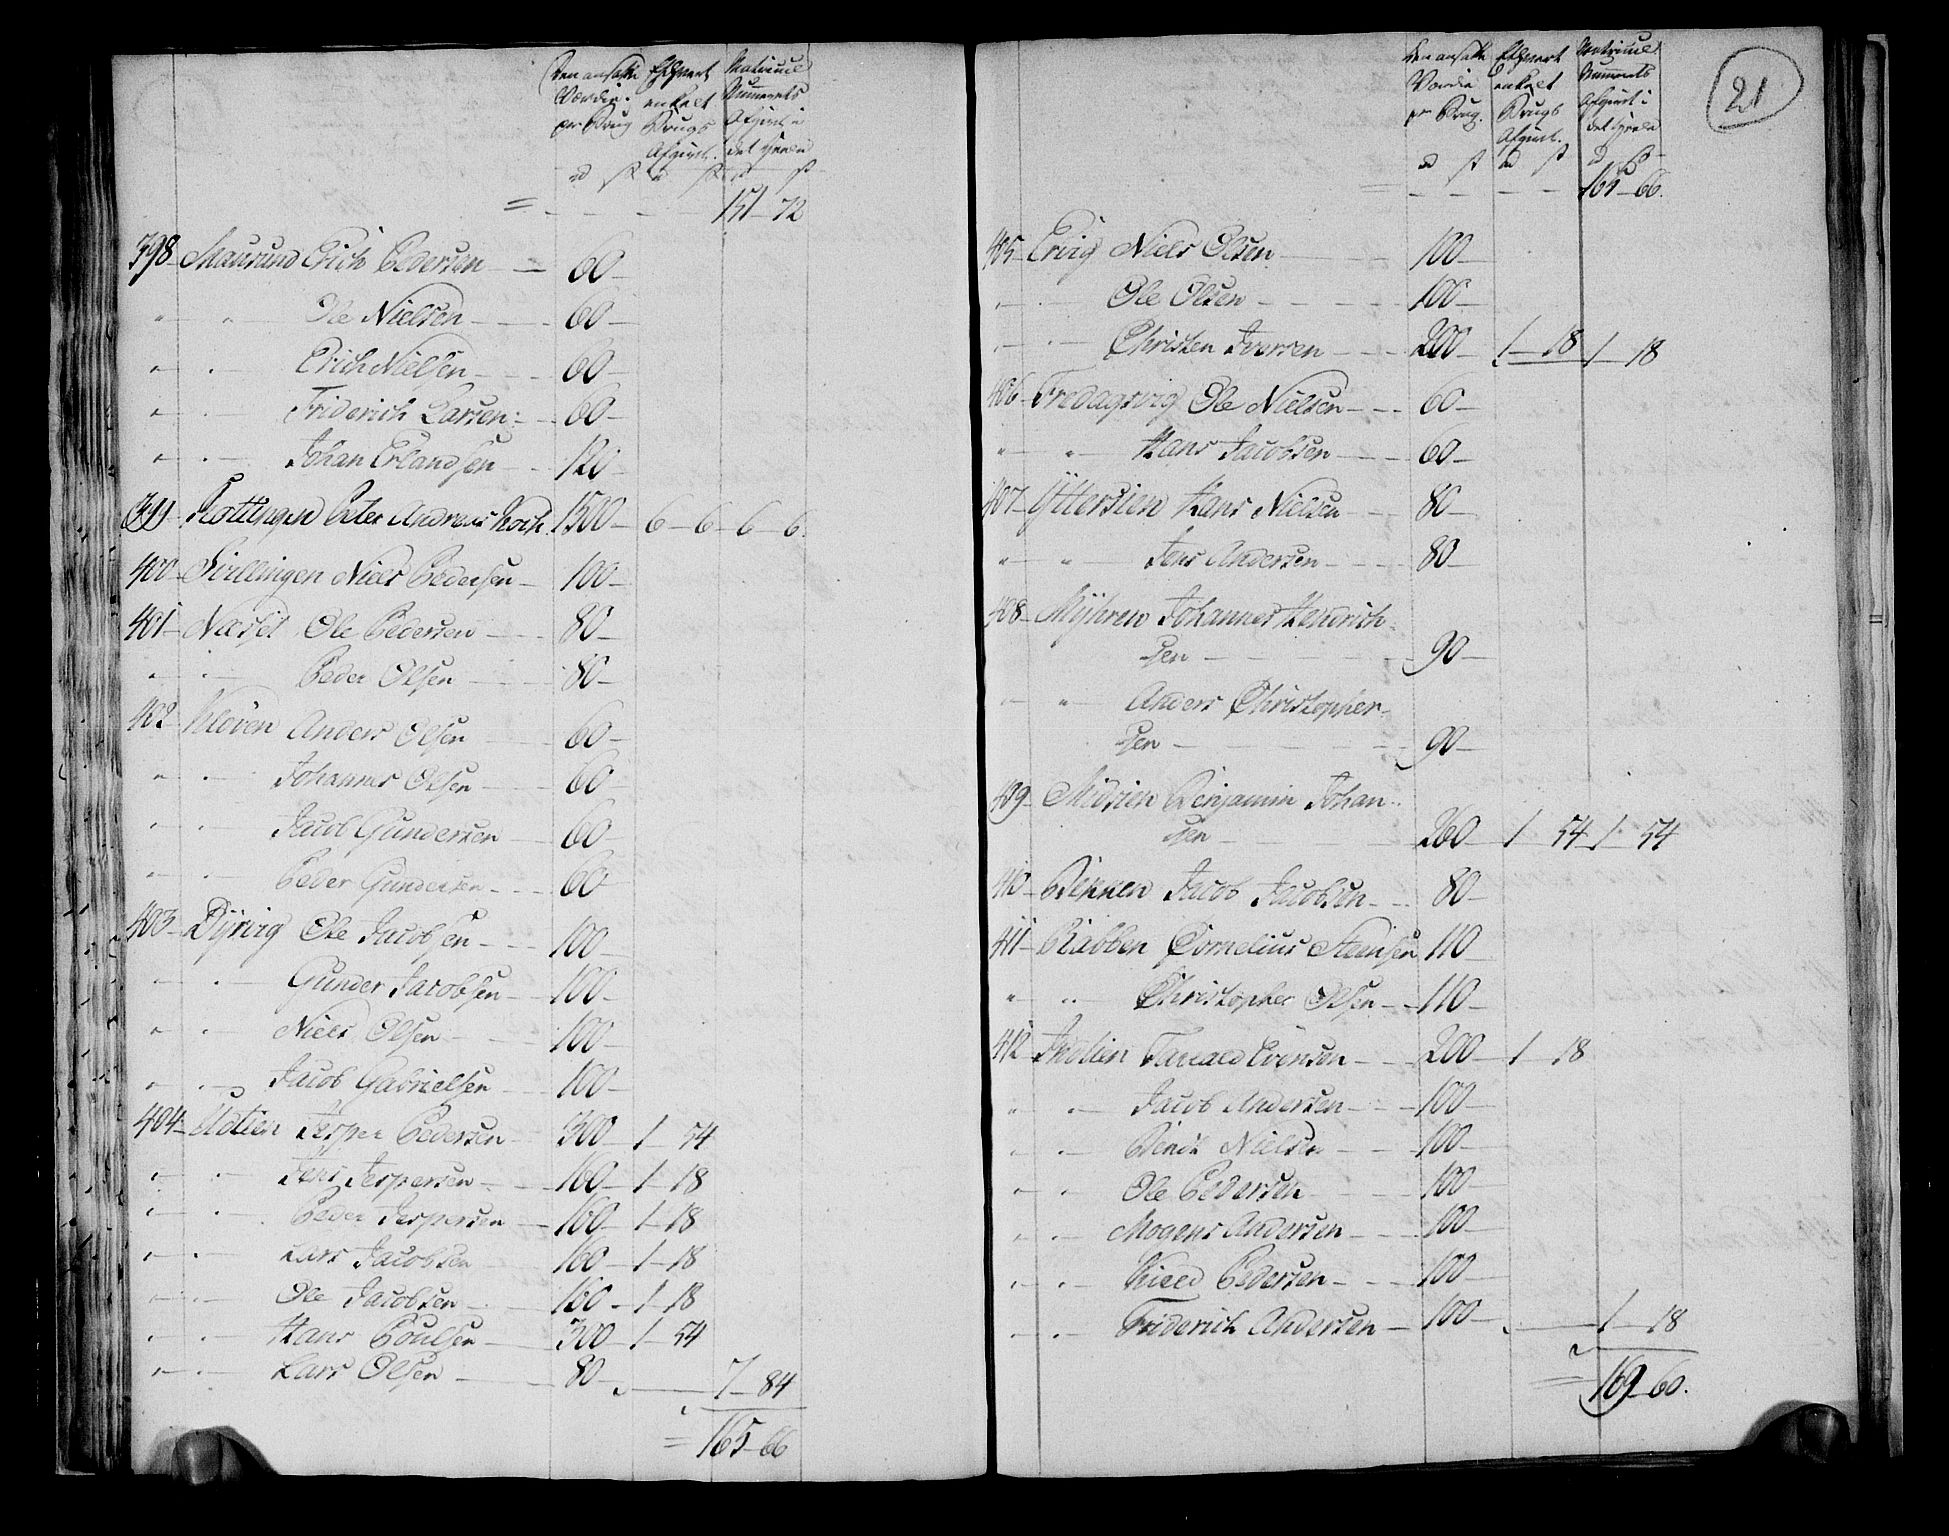 Den ansatte Ethvert Matricul
Værdie enkelt Nummerets
pr Brug Brugs Afgivt i
Afgivt. det heele
rd s rd s rd s
= 151 - 72
398 - Maurund Erich Pedersen - 60 -
" " Ole Nielsen - 60 -
" " Erich Nielsen - 60 -
" " Friderich Larsen - 60 -
" " Johan Erlandsen - 120 -
399 - Kottingen Peter Andreas Koch 1500 - 6 - 6 - 6 - 6.
400 - Sirllingen Niels Pedersen - 100 -
401 - Næsset Ole Pedersen - 80 -
" " Peder Olsen - 80 -
402 - Kloven Anders Olsen - 60 -
" " Johannes Olsen - 60 -
" " Jacob Gundersen - 60 -
" " Peder Gundersen - 60 -
403 - Dyrvig Ole Jacobsen - 100 -
" " Gunder Jacobsen - 100 -
" " Niels Olsen - 100 -
" " Jacob Gabrielsen - 100 -
404 - Udtien Jesper Pedersen - 300 - 1 - 54
" " Jens Jespersen - 160 - 1 - 18
" " Peder Jespersen - 160 - 1 - 18
" " Lars Jacobsen - 160 - 1 - 18
" " Ole Jacobsen - 160 - 1 - 18
" " Hans Poulsen - 300 - 1 - 54
" " Lars Olsen - 80 - 7 - 84
= 165 - 66
21
Den ansatte Ethvert Matricul
Værdie enkelt Nummerets
pr Brug. Brugs Afgivt i
Afgivt. det heele
rd s rd s rd s
= 165 - 66.
405 - Ervig Niels Olsen - 100 -
" " Ole Olsen - 100 -
" " Christen Iversen - 200 - 1 - 18 1 - 18
406 - Fredagsvig Ole Nielsen - 60 -
" " Hans Jacobsen - 60 -
407 - Yttersien Hans Nielsen - 80 -
" " Jens Andersen - 80 -
408 - Myhren Johannes Hendrich-
sen - 90 -
" " Anders Christopher-
sen - 90 -
409 - Midsien Benjamin Johan-
sen - 260 - 1 - 54 1 - 54
410 - Bekken Jacob Jacobsen - 80 -
411 - Rabben Cornelius Steensen 110 -
" " Christopher Olsen - 110 -
412 - Indlien Tarald Evensen - 200 - 1 - 18
" " Jacob Andersen - 100 -
" " Bendt Nielsen - 100 -
" " Ole Pedersen - 100 -
" " Mogens Andersen - 100 -
" " Kield Pedersen - 100 -
" " Friderich Andersen - 100 - 1 - 18
= 169 - 60.